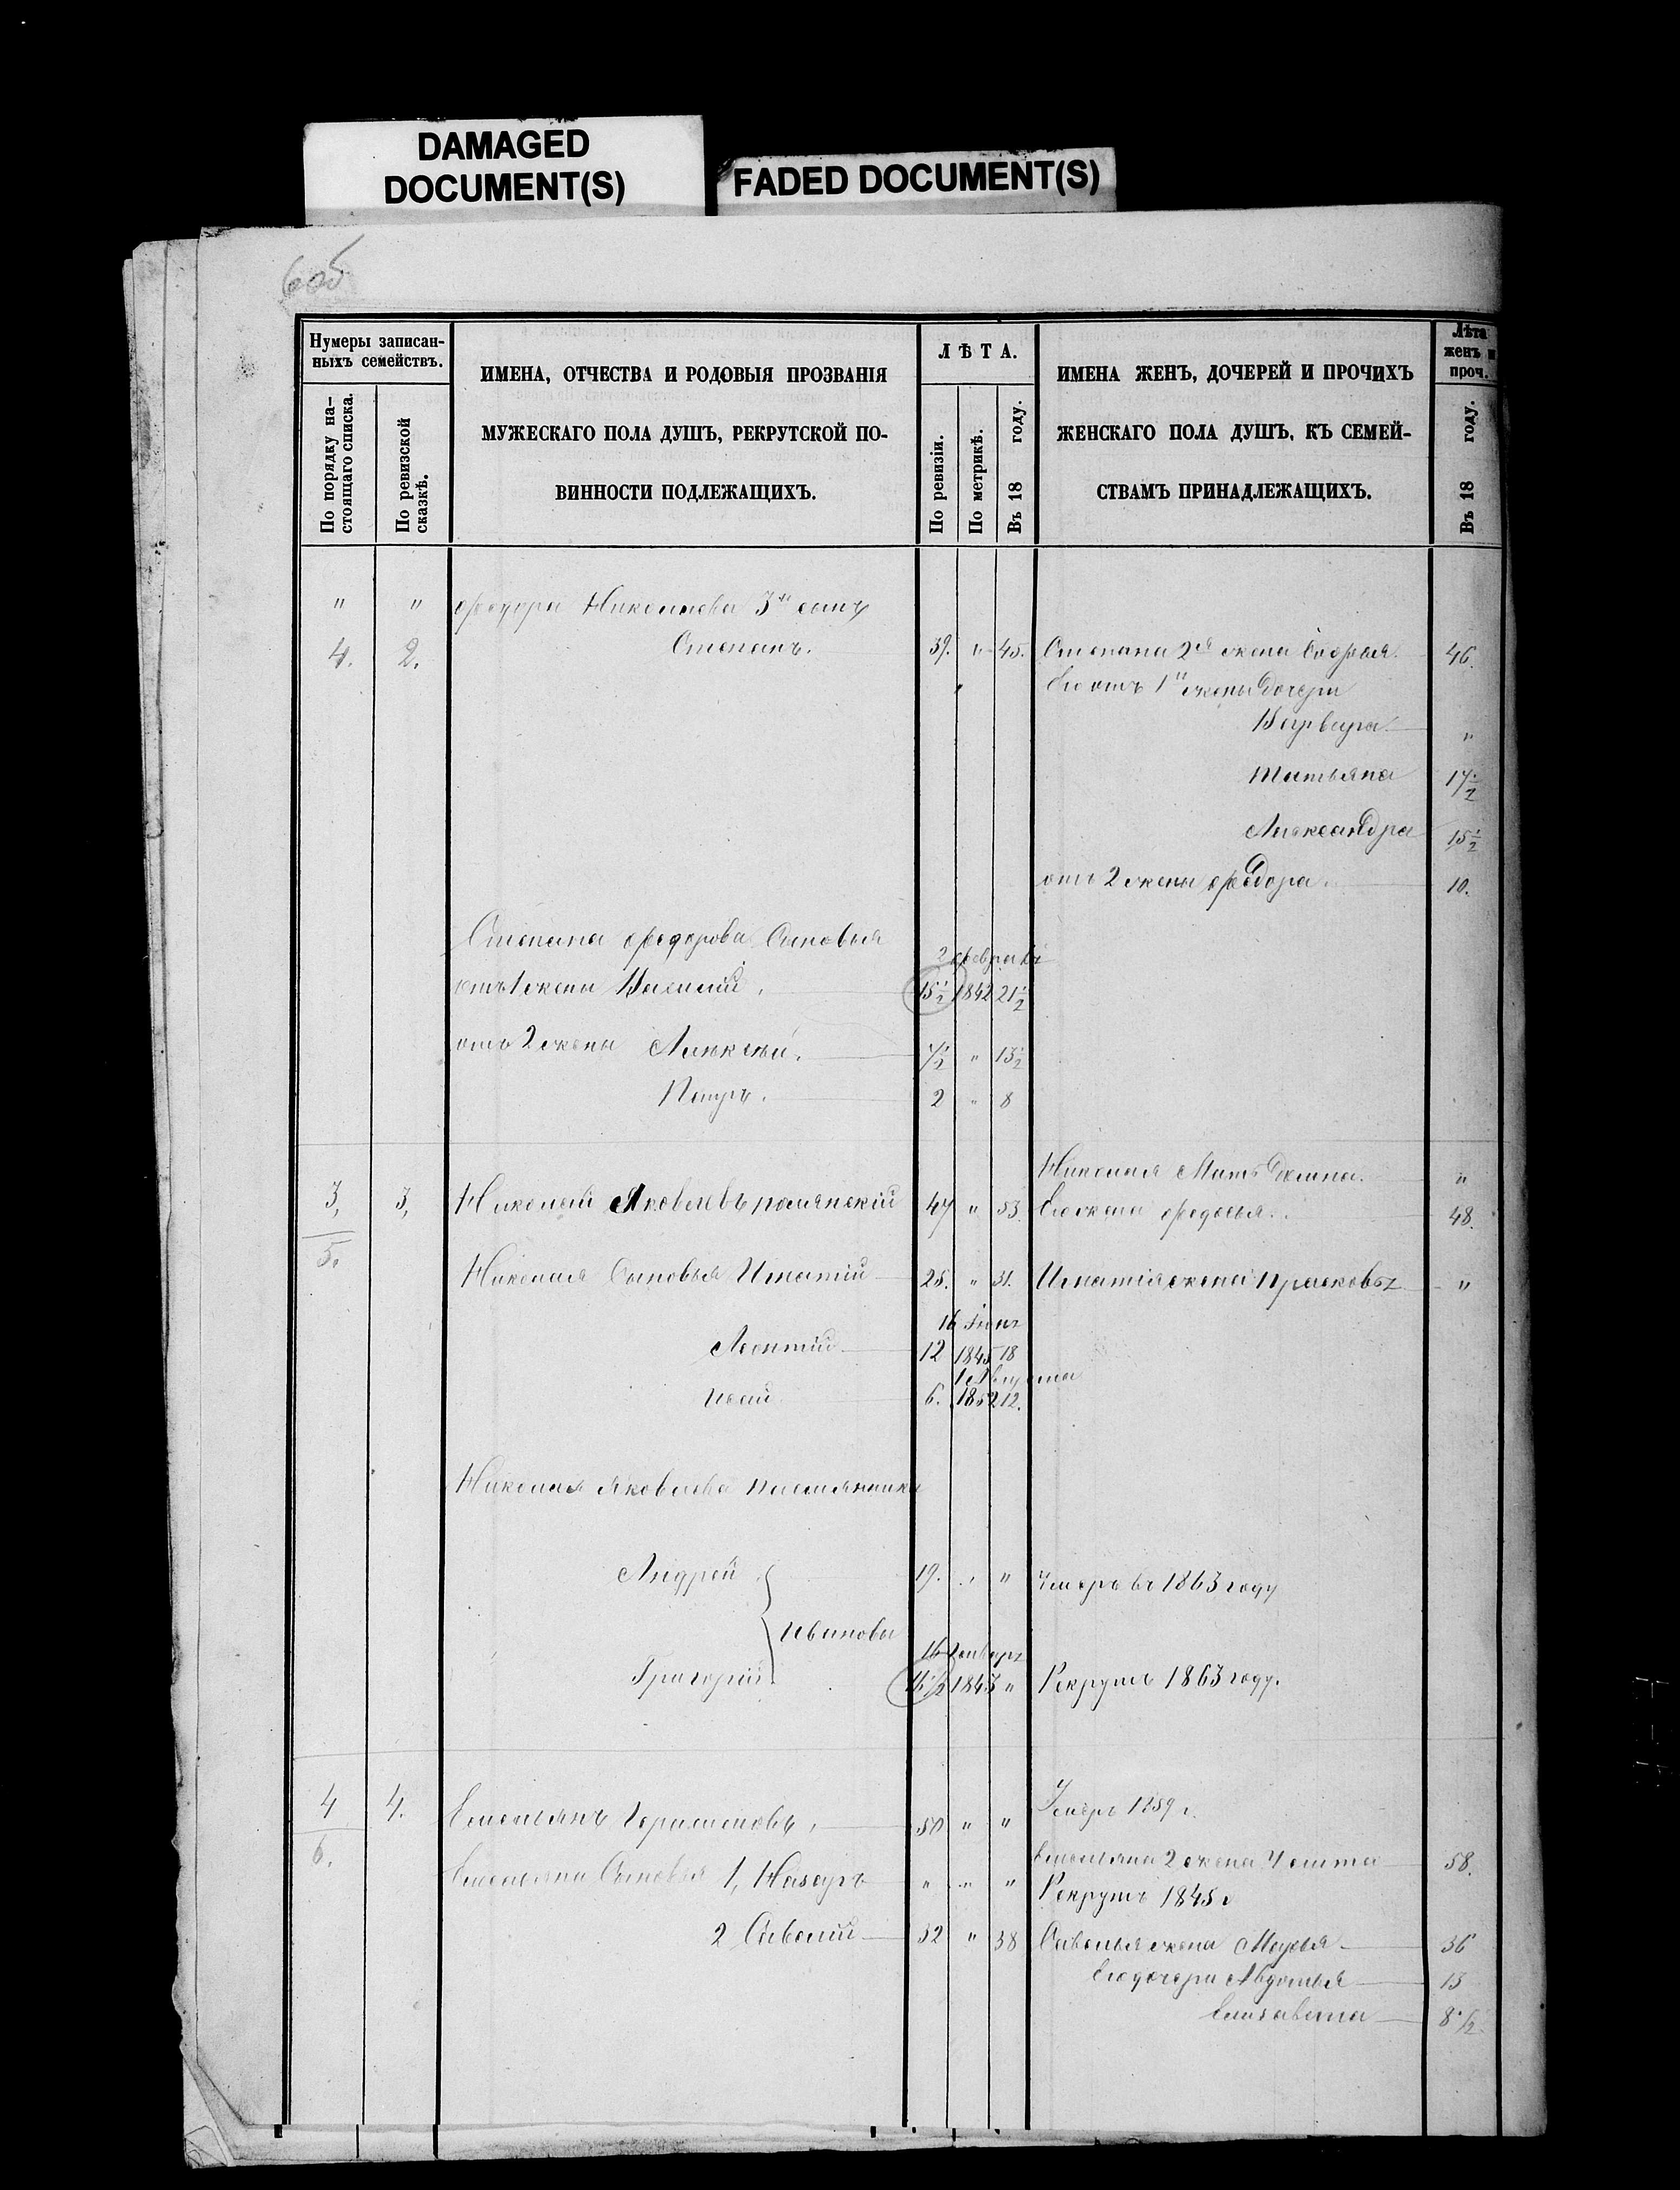 DAMAGED
DOCUMENT(S)
FADED DOCUMENT(S)
6об
Нумеры записан-
ныхъ семействъ.
По порядку на-
стоящаго списка.
По ревизской
сказкѣ.
ИМЕНА, ОТЧЕСТВА И РОДОВЫЯ ПРОЗВАНІЯ
МУЖЕСКАГО ПОЛА ДУШЪ, РЕКРУТСКОЙ ПО-
ВИННОСТИ ПОДЛЕЖАЩИХЪ.
ЛѢТА.
По ревизіи.
По метрикѣ.
Въ 18 году.
ИМЕНА ЖЕНЪ, ДОЧЕРЕЙ И ПРОЧИХЪ
ЖЕНСКАГО ПОЛА ДУШЪ, КЪ СЕМЕЙ-
СТВАМЪ ПРИНАДЛЕЖАЩИХЪ.
Лѣта
женъ и
проч.
Въ 18 году.
" " Федора Николаева 3й сынъ
4. 2. Степанъ. 39. " 45. Степана 2я жена Софья 46.
Его отъ 1й жены дочери
Варвара "
Татьяна 17 1/2
Александра 15 1/2
отъ 2 жены Федора 10.
Степана Федорова Сыновья
2 февраля
отъ 1 жены Василій. 15 1/2 1842 21 1/2
отъ 2 жены Алексѣй. 7 1/2 " 13 1/2
Петръ. 2 " 8
Николая Мать "
3, 3, Николай Яковлевъ 47 " 53. Его жена Федосья 48.
5.
Николая Сыновья Игнатій 25. " 31. Игнатія жена Прасковья "
16 Іюня
Леонтій 12 1845 18
1 Августа
Исай 6. 1852 12.
Николая Яковлева племянники
Андрей 19. " " Умеръ въ 1863 году
Ивановы
16 Генваря
Григорій 16 1/2 1843 " Рекрутъ 1863 году.
4 4. Емельянъ 50 " " Умеръ 1859 г.
6.
Емельяна 2 жена 58.
Емельяна Сыновья 1, Назаръ " " " Рекрутъ 1845 г
2 Савелій 32 " 38 Савелья жена Марья 36
Его дочери Авдотья 13
Елизавета 8 1/2